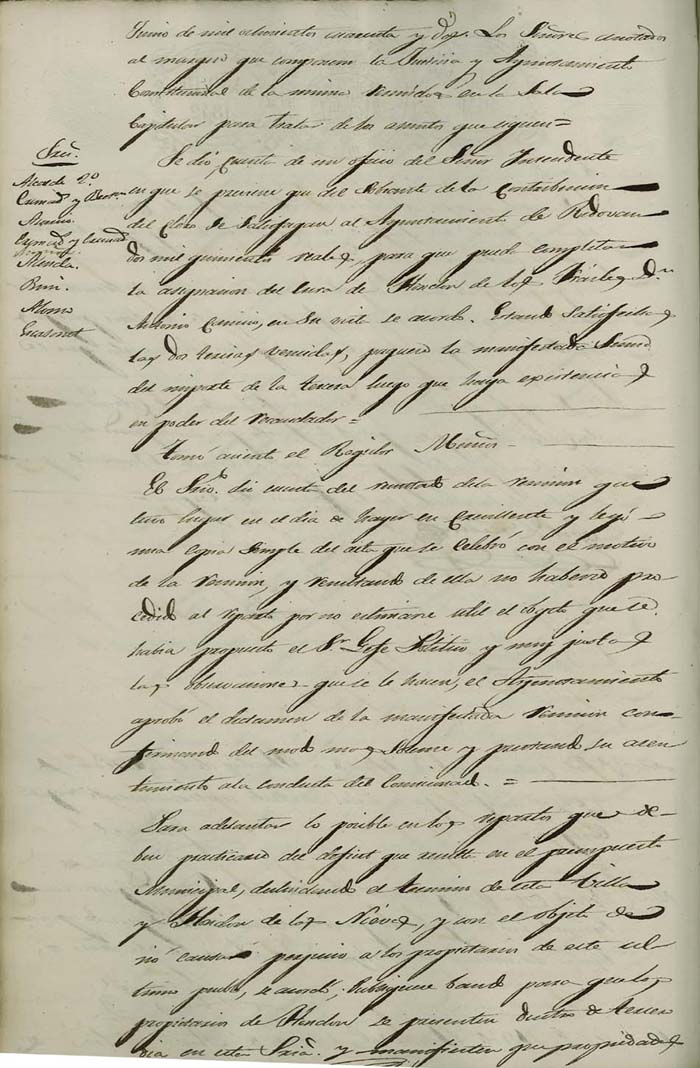 Junio de mil ochocientos cuarenta y dos. Los Señores anotados
al margen que componen la Justicia y Ayuntamiento
Constitucional de la misma reunidos en la Sala
Capitular para tratar de los asuntos que siguen =
Sres.
Alcalde 2º
Se dió cuenta de un oficio del Señor Intendente
en que se previene que del sobrante de la Contribucion
del Clero se satisfagan al Ayuntamiento de Redovan
dos mil quinientos reales para que pueda completar
la asignacion del Cura de Hondon de los Frailes Dn.
Antonio en su vista se acordó. Estando satisfechas
las dos tercias vencidas, paguese la manifestada suma
del importe de la tercera luego que haya existencias
en poder del recaudador =
Tomó asiento el Regidor
El Srio. dio cuenta del resultado de la reunion que
tuvo lugar en el dia de hayer en Crevillente y leyó
una copia simple del acta que se celebró con el motivo
de la reunion, y resultando de ella no haberse pro-
cedido al reparto por no estimarse util el objeto que se
habia propuesto el Sr. Gefe Politico y muy justas
las observaciones que se le hacen, el Ayuntamiento
aprobó el dictamen de la manifestada reunion con-
firmando del modo mas solemne y prestando su asen-
timiento a la conducta del Comisionado. =
Para adelantar lo posible en los repartos que de-
ben practicarse del deficit que resulta en el presupuesto
Municipal, deslindando el termino de esta Villa
y Hondon de las Nieves, y con el objeto de
no causar perjuicio a los propietarios de este ul-
timo pueblo, se acordó; bando para que los
propietarios de Hondon se presenten dentro de tercero
dia en esta Sria. y manifiesten que propiedades